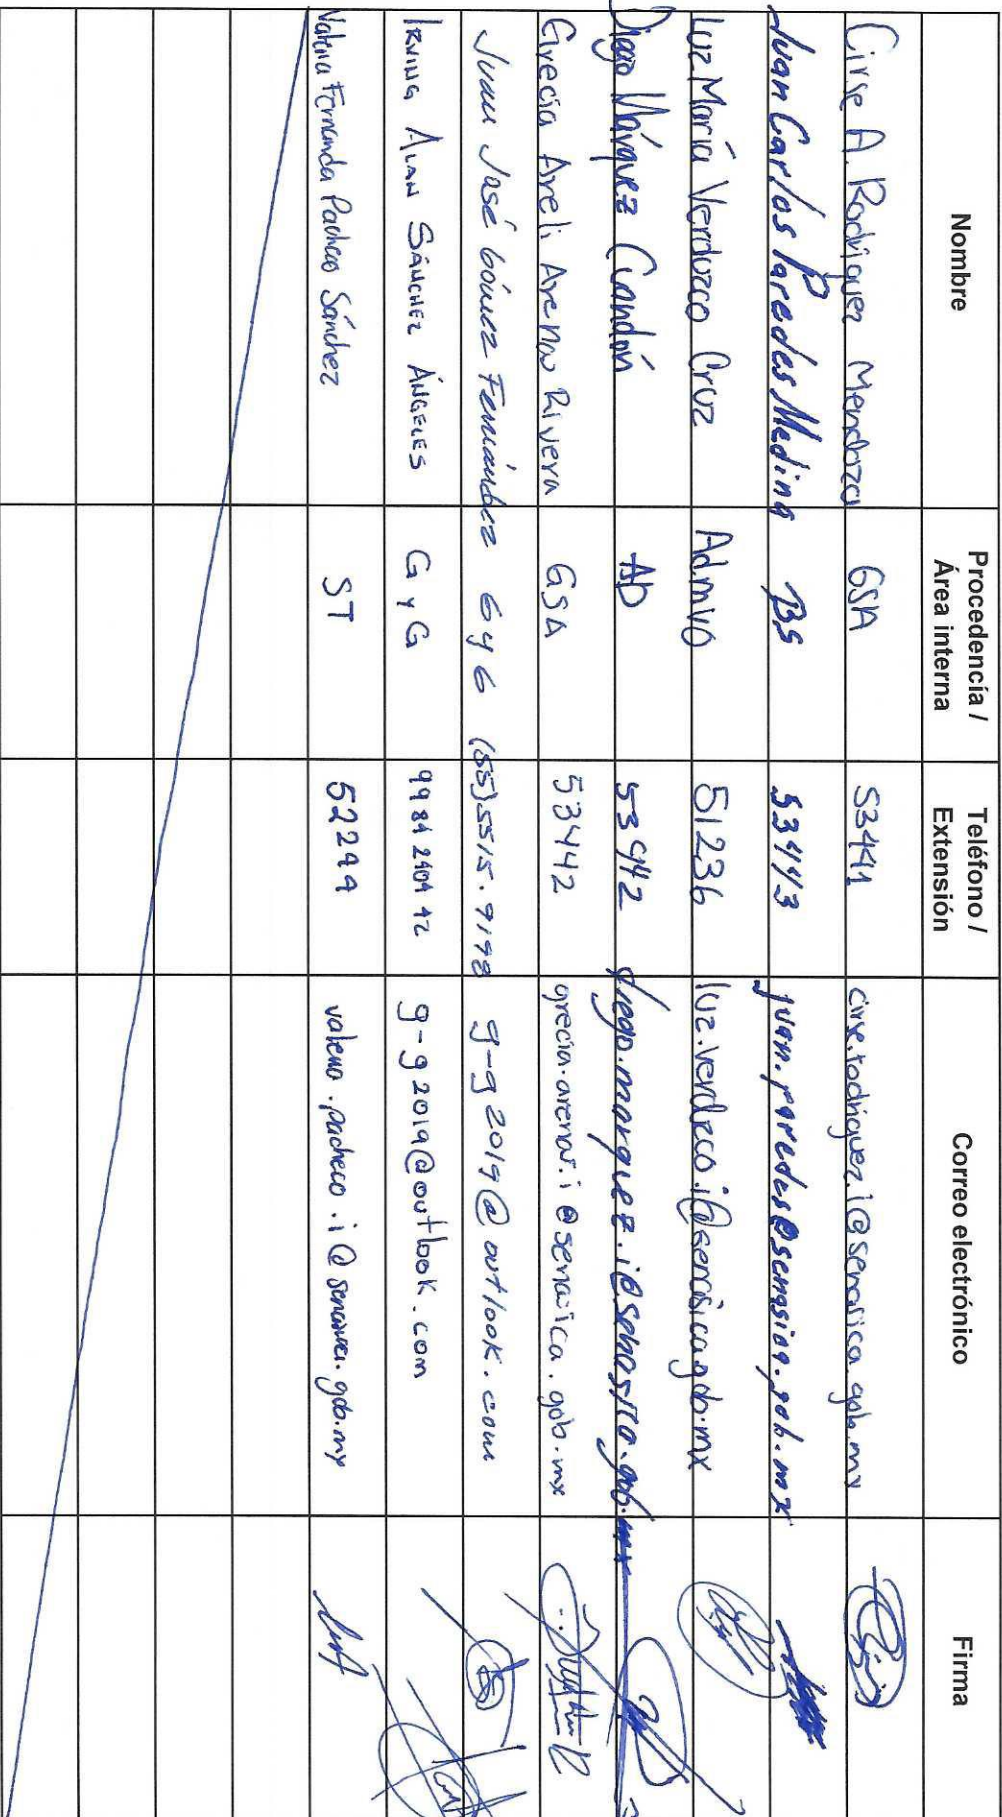 Nombre Procedencia / Área interna Teléfono / Extensión Correo electrónico Firma
Cirse A. Rodríguez Mendoza GSA 53441 cirse.rodriguez.i@senasica.gob.mx
Juan Carlos Paredes Medina BS 53443 juan.paredes@senasica.gob.mx
Luz María Verduzco Cruz Admvo 51236 luz.verduzco.i@senasica.gob.mx
Diego Márquez Candón AD 53442 diego.marquez.i@senasica.gob.mx
Grecia Areli Arenas Rivera GSA 53442 grecia.arenas.i@senasica.gob.mx
Juan José Gómez Fernández GyG (55)5515.9198 g-g2019@outlook.com
Irving Alan Sánchez Ángeles G y G g-g2019@outlook.com
Valeria Fernanda Pacheco Sánchez ST valeria.pacheco.i@senasica.gob.mx